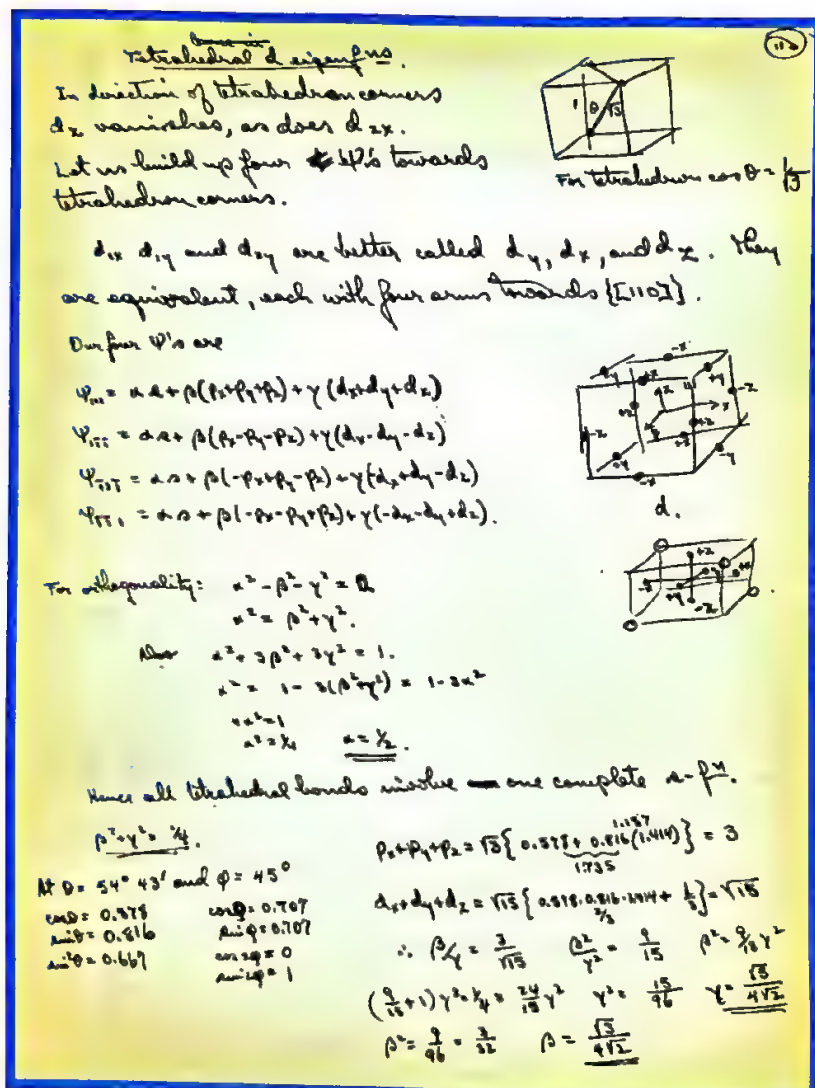 Tetrahedral d eigenfns.
In direction of tetrahedron corners
dz vanishes, as does dzx.
Let us build up four Ψ's towards
tetrahedron corners.
1 θ √3
For tetrahedron cos θ = 1/√3
dxy are better called dy, dx, and dz. They
are equivalent, each with four arms towards {[110]}.
Our four Ψ's are
Ψ111 = αs + β(px+py+pz) + γ(dx+dy+dz)
Ψ11̄1̄ = αs + β(px-py-pz) + γ(dx-dy-dz)
Ψ1̄11̄ = αs + β(-px+py-pz) + γ(-dx+dy-dz)
Ψ1̄1̄1 = αs + β(-px-py+pz) + γ(-dx-dy+dz).
d.
For orthogonality: α² - β² - γ² = 0
α² = β² + γ².
Also α² + 3β² + 3γ² = 1.
α² = 1 - 3(β²+γ²) = 1 - 3α²
4α² = 1
α² = 1/4 α = 1/2.
Hence all tetrahedral bonds involve one complete s-fn.
β² + γ² = 1/4.
At θ = 54° 43' and φ = 45°
cosθ = 0.578 cosφ = 0.707
sinθ = 0.816 sinφ = 0.707
sin²θ = 0.667 cos2φ = 0
sin2φ = 1
px+py+pz = √3{0.578 + 0.816(1.414)} = 3
1.157
1.735
dx+dy+dz = √15{0.578·0.816·1.414 + 1/3} = √15
2/3
∴ β/γ = 3/√15 β²/γ² = 9/15 β² = 9/15 γ²
(9/15 + 1)γ² = 1/4 = 24/15 γ² γ² = 15/96 γ = √5/4√2
β² = 9/96 = 3/32 β = √3/4√2